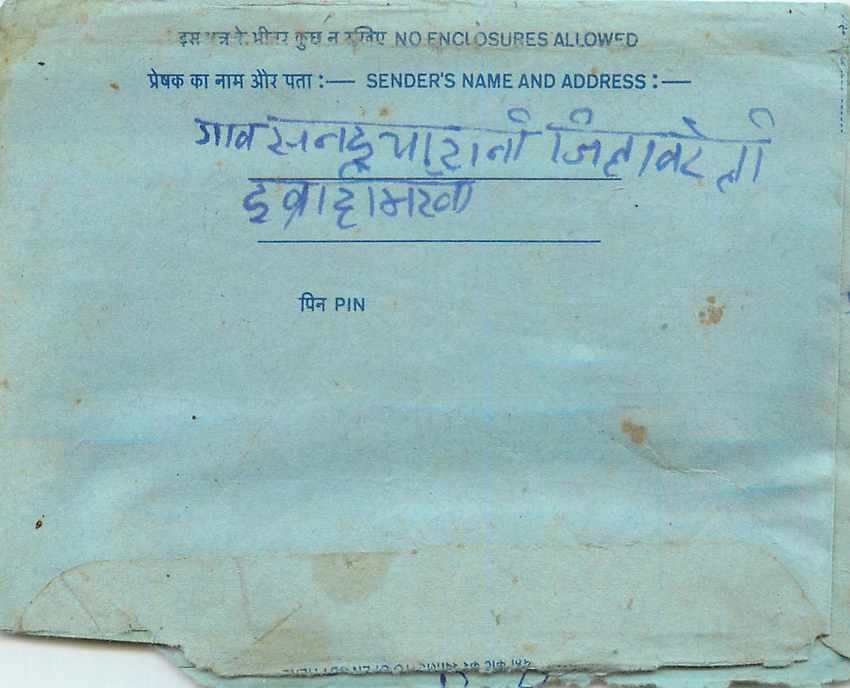 इस पत्र के भीतर कुछ न रखिए NO ENCLOSURES ALLOWED
प्रेषक का नाम और पता :— SENDER'S NAME AND ADDRESS :—
गाव जिलावरेली
इब्राहीमखा
पिन PIN